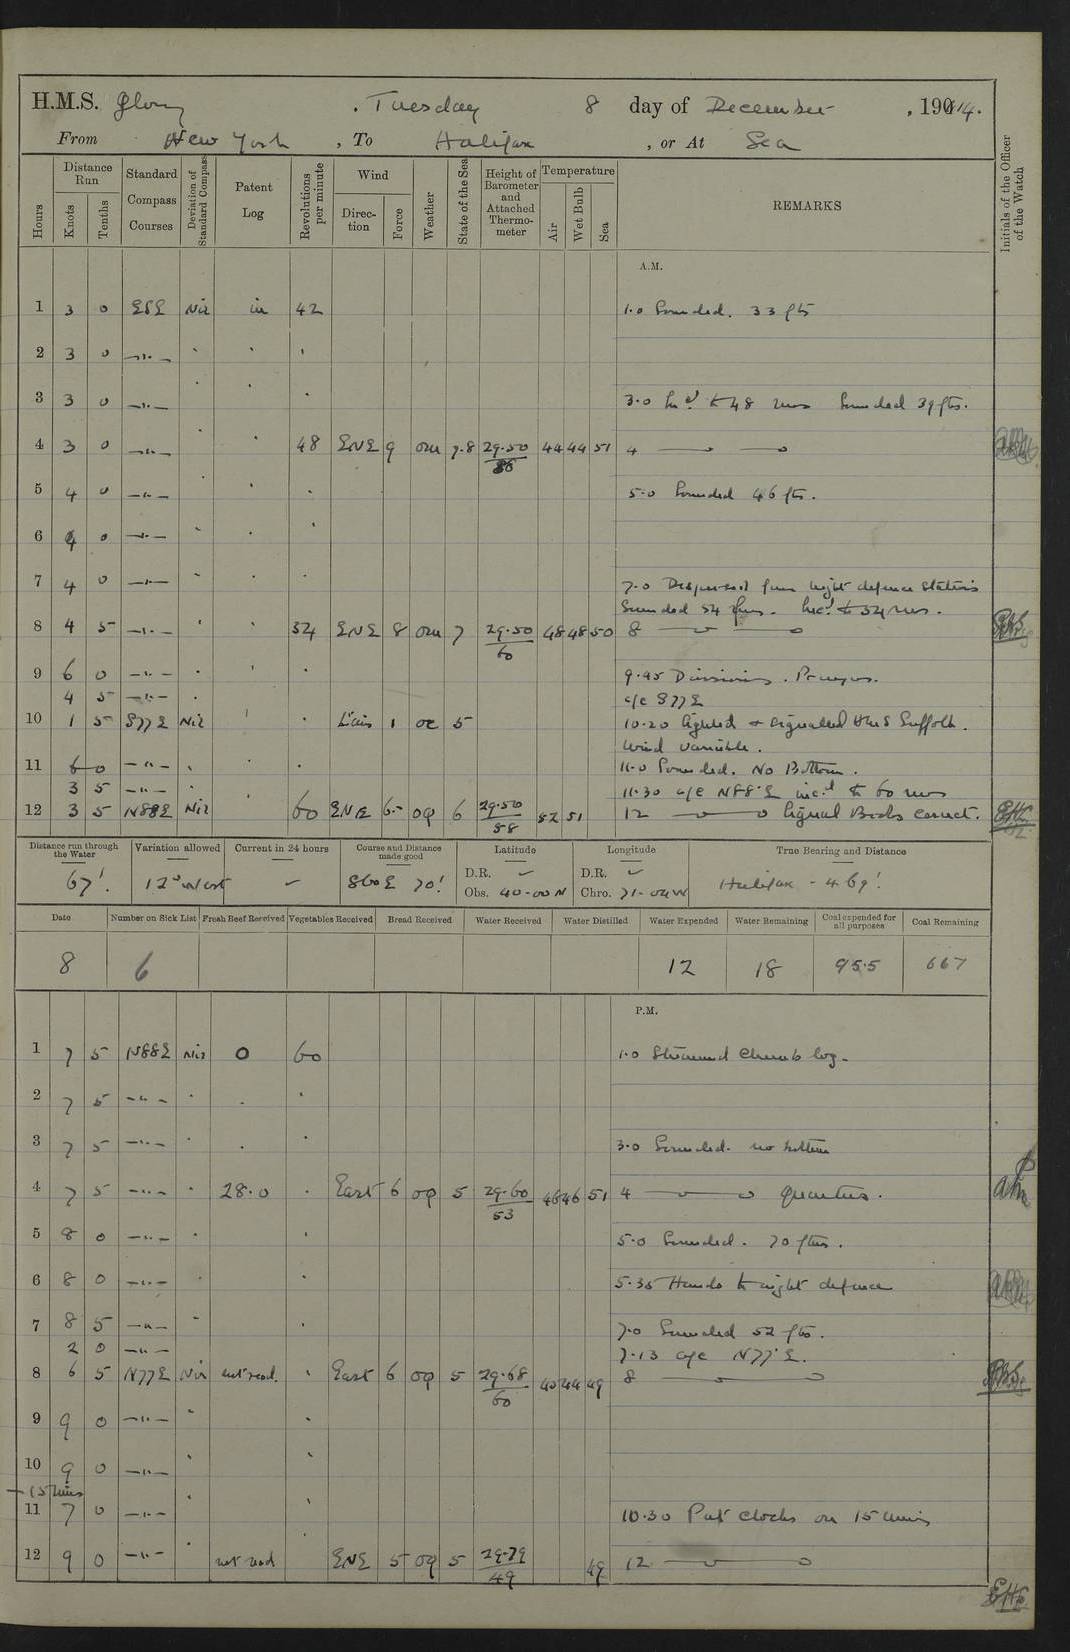 H.M.S. Glory . Tuesday 8 day of December , 1914.
From New York , To Halifax , or At Sea
Hours
Distance Run
Knots
Tenths
Standard Compass Courses
Deviation of Standard Compass
Patent Log
Revolutions per minute
Wind
Direction
Force
Weather
State of the Sea
Height of Barometer and Attached Thermometer
Temperature
Air
Wet Bulb
Sea
REMARKS
Initials of the Officer of the Watch
A.M.
1 3 0 ESE Nil in 42 1.0 Sounded. 33 fts
2 3 0 —"—
3 3 0 —"— 3.0 Incd to 48 revs Sounded 39 fts.
4 3 0 —"— 48 ENE 9 7.8 29.50 44 44 51 4
5 4 0 —"— 5.0 Sounded 46 fts.
6 4 0 —"—
7 4 0 —"— 7.0 Dispersed from night defence stations
Sounded 54 fms. Incd to 54 revs.
8 4 5 —"— 54 ENE 8 7 29.50 60 48 48 50 8
9 6 0 —"— 9.45 Divisions. Prayers.
4 5 —"— a/c S77E
10 1 5 S77E Nil 1 oc 5 10.20 Sighted & signalled HMS Suffolk.
Wind variable.
11 6 0 —"— 11.0 Sounded. No Bottom.
3 5 —"— 11.30 a/c N88°E incd to 60 revs
12 3 5 N88E Nil 60 ENE 6 oq 6 29.50 58 52 51 12 Signal Books correct.
Distance run through the Water
67'.
Variation allowed
12° West
Current in 24 hours
–
Course and Distance made good
S60E 70'
Latitude
D.R. –
Obs. 40-00 N
Longitude
D.R. –
Chro. 71-04 W
True Bearing and Distance
Halifax - 469'.
Date Number on Sick List Fresh Beef Received Vegetables Received Bread Received Water Received Water Distilled Water Expended Water Remaining Coal expended for all purposes Coal Remaining
8 6 12 18 95.5 667
P.M.
1 7 5 N88E Nil 0 60 1.0 Streamed Cherub log.
2 7 5 —"—
3 7 5 —"— 3.0 Sounded. no bottom
4 7 5 —"— 28.0 East 6 oq 5 29.60 53 46 46 51 4 Quarters.
5 8 0 —"— 5.0 Sounded. 70 ftms.
6 8 0 —"— 5.35 Hands to night defence
7 8 5 —"— 7.0 Sounded 52 fts.
2 0 —"— 7.13 a/c N77°E.
8 6 5 N77E Nil not read. East 6 oq 5 29.68 60 45 44 49 8
9 9 0 —"—
10 9 0 —"—
— 15 mins
11 7 0 —"— 10.30 Put clocks on 15 mins
12 9 0 —"— not read ENE 5 oq 5 29.79 49 49 12